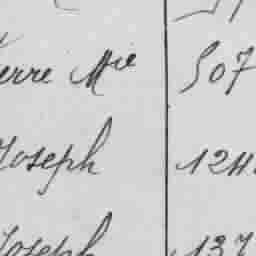 erre Mie 507
Joseph 124
Joseph 137